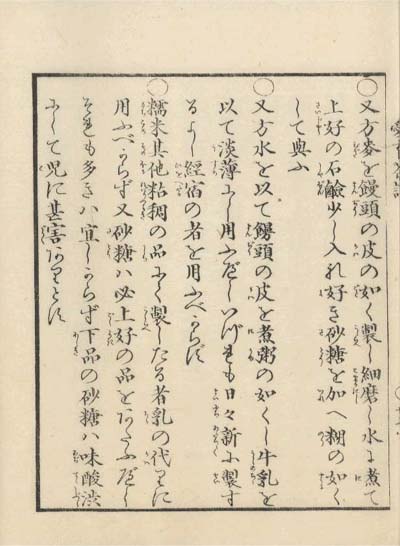 ○又方麥を饅頭の皮の如く製し細磨し水に煮て
上好の石鹼少し入れ好き砂糖を加へ糊の如く
して與ふ
○又方水を以て饅頭の皮を煮粥の如くし牛乳を
以て淡薄にし用ふべしいづれも日々新に製す
るよし經宿の者を用ふべからず
○糯米其他粘稠の品にて製したる者乳の代りに
用ふべからず又砂糖ハ必上好の品をあたふべし
それも多きハ宜しからず下品の砂糖ハ味酸澁
にして児に甚害ありとす